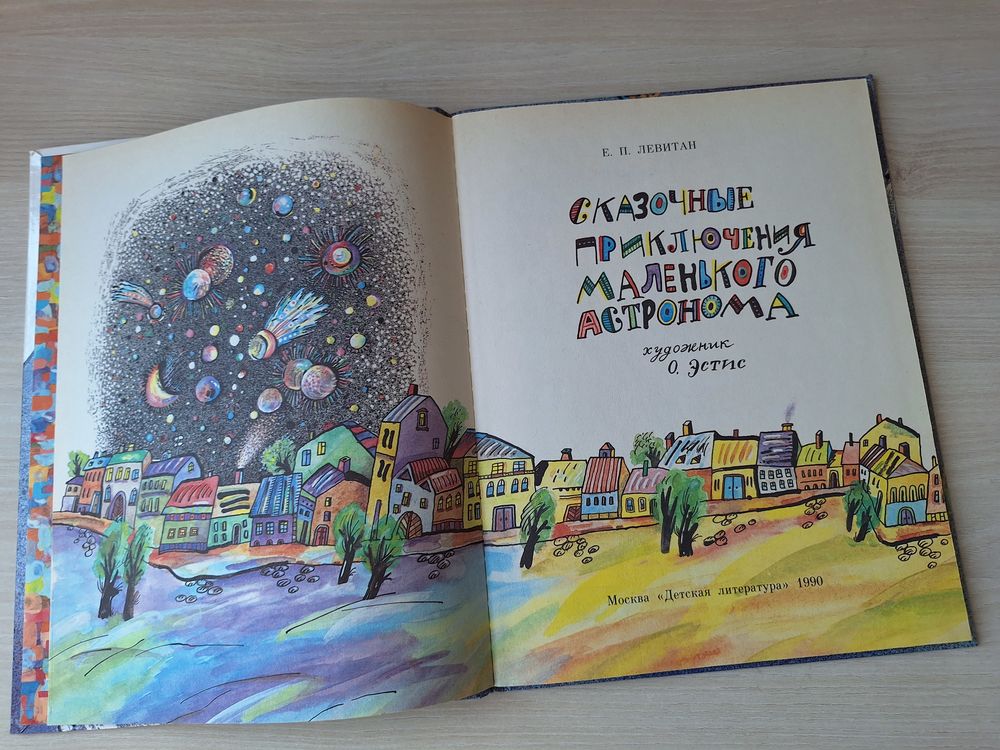 Е. П. ЛЕВИТАН
СКАЗОЧНЫЕ
ПРИКЛЮЧЕНИЯ
МАЛЕНЬКОГО
АСТРОНОМА
художник
О. Эстис
Москва «Детская литература» 1990